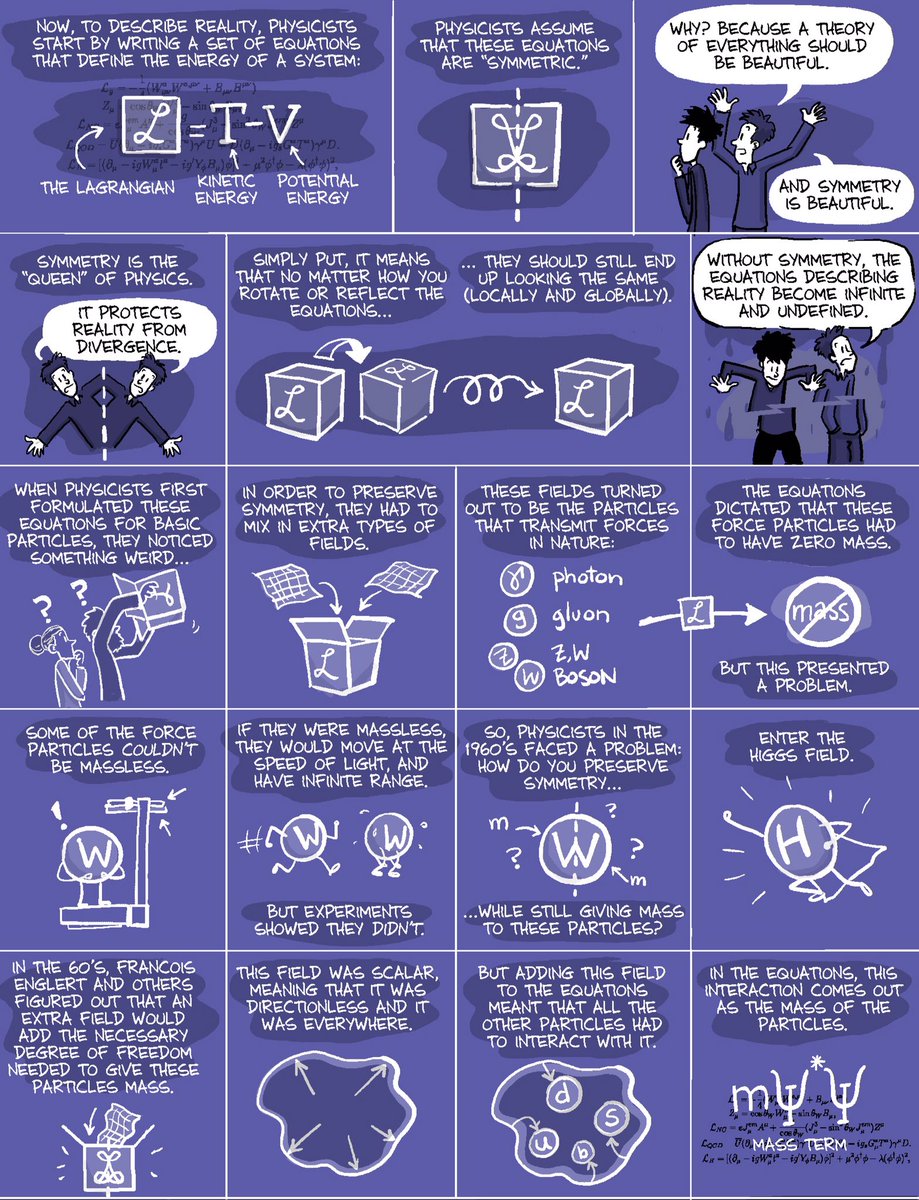 NOW, TO DESCRIBE REALITY, PHYSICISTS
START BY WRITING A SET OF EQUATIONS
THAT DEFINE THE ENERGY OF A SYSTEM:
ℒ = T V
THE LAGRANGIAN
KINETIC
ENERGY
POTENTIAL
ENERGY
PHYSICISTS ASSUME
THAT THESE EQUATIONS
ARE “SYMMETRIC.”
WHY? BECAUSE A THEORY
OF EVERYTHING SHOULD
BE BEAUTIFUL.
AND SYMMETRY
IS BEAUTIFUL.
SYMMETRY IS THE
“QUEEN” OF PHYSICS.
IT PROTECTS
REALITY FROM
DIVERGENCE.
SIMPLY PUT, IT MEANS
THAT NO MATTER HOW YOU
ROTATE OR REFLECT THE
EQUATIONS...
... THEY SHOULD STILL END
UP LOOKING THE SAME
(LOCALLY AND GLOBALLY).
ℒ
ℒ
ℒ
WITHOUT SYMMETRY, THE
EQUATIONS DESCRIBING
REALITY BECOME INFINITE
AND UNDEFINED.
WHEN PHYSICISTS FIRST
FORMULATED THESE
EQUATIONS FOR BASIC
PARTICLES, THEY NOTICED
SOMETHING WEIRD...
? ?
ℒ
IN ORDER TO PRESERVE
SYMMETRY, THEY HAD TO
MIX IN EXTRA TYPES OF
FIELDS.
ℒ
THESE FIELDS TURNED
OUT TO BE THE PARTICLES
THAT TRANSMIT FORCES
IN NATURE:
γ photon
g gluon
Z W Z,W
BOSON
THE EQUATIONS
DICTATED THAT THESE
FORCE PARTICLES HAD
TO HAVE ZERO MASS.
ℒ
mass
BUT THIS PRESENTED
A PROBLEM.
SOME OF THE FORCE
PARTICLES COULDN'T
BE MASSLESS.
!
W
IF THEY WERE MASSLESS,
THEY WOULD MOVE AT THE
SPEED OF LIGHT, AND
HAVE INFINITE RANGE.
W W
BUT EXPERIMENTS
SHOWED THEY DIDN'T.
SO, PHYSICISTS IN THE
1960'S FACED A PROBLEM:
HOW DO YOU PRESERVE
SYMMETRY...
m ? ? W ? m
...WHILE STILL GIVING MASS
TO THESE PARTICLES?
ENTER THE
HIGGS FIELD.
H
IN THE 60'S, FRANCOIS
ENGLERT AND OTHERS
FIGURED OUT THAT AN
EXTRA FIELD WOULD
ADD THE NECESSARY
DEGREE OF FREEDOM
NEEDED TO GIVE THESE
PARTICLES MASS.
THIS FIELD WAS SCALAR,
MEANING THAT IT WAS
DIRECTIONLESS AND IT
WAS EVERYWHERE.
BUT ADDING THIS FIELD
TO THE EQUATIONS
MEANT THAT ALL THE
OTHER PARTICLES HAD
TO INTERACT WITH IT.
d
u
b
s
IN THE EQUATIONS, THIS
INTERACTION COMES OUT
AS THE MASS OF THE
PARTICLES.
mΨ*Ψ
MASS TERM